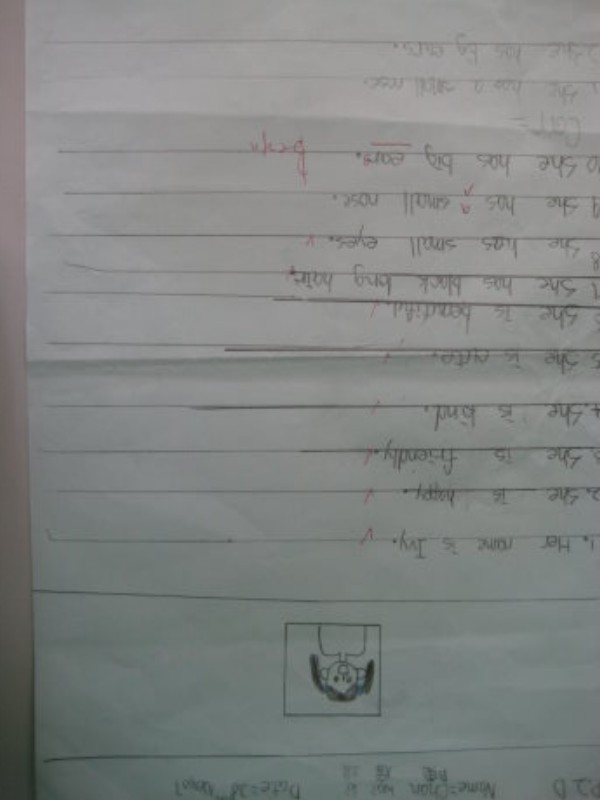 P.2 D Name: Chan
1. Her name is Ivy.
2. She is happy.
3. She is friendly.
4. She is kind.
5. She is cute.
6. She is beautiful.
7. She has black long hair.
8. She has small eyes.
9. She has ^ small nose.
10. She has big ears.
Corr =
1. She has a small nose.
2. She has big ears.